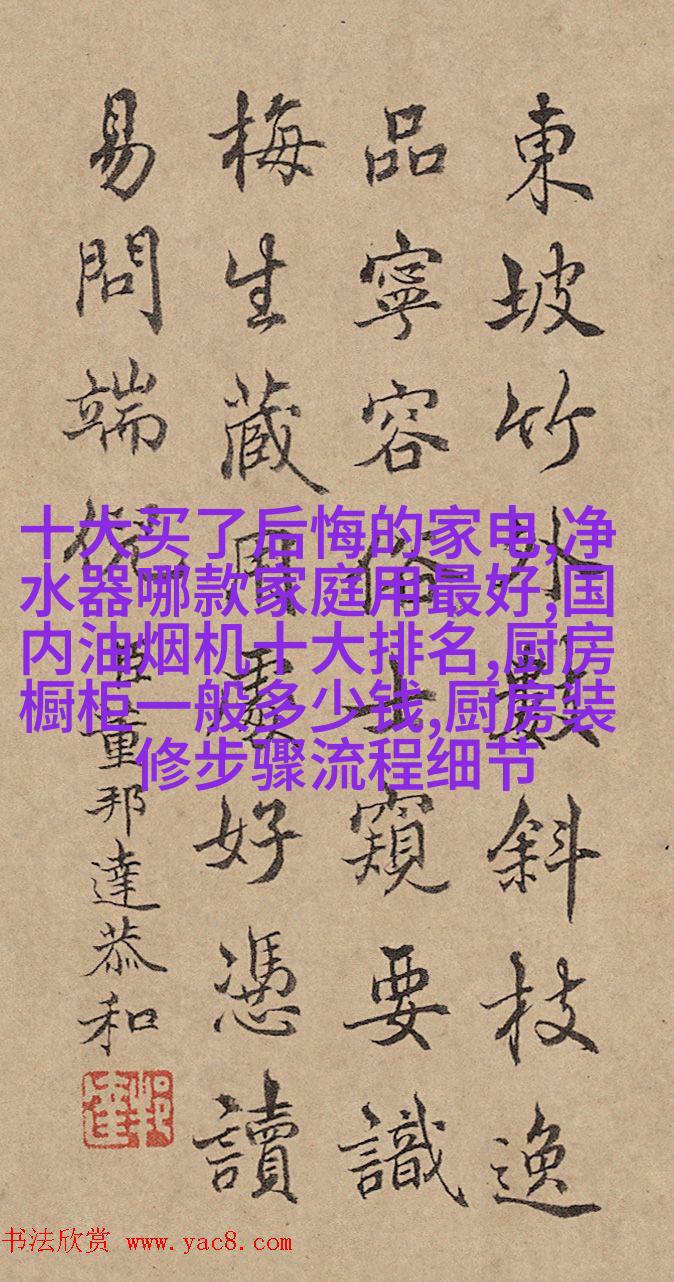 東坡竹外數斜枝逸
品寧容俗士窺要識
梅生藏用處好憑讀
易問端倪
臣董邦達恭和
十大买了后悔的家电,净
水器哪款家庭用最好,国
内油烟机十大排名,厨房
橱柜一般多少钱,厨房装
修步骤流程细节
书法欣赏 www.yac8.com